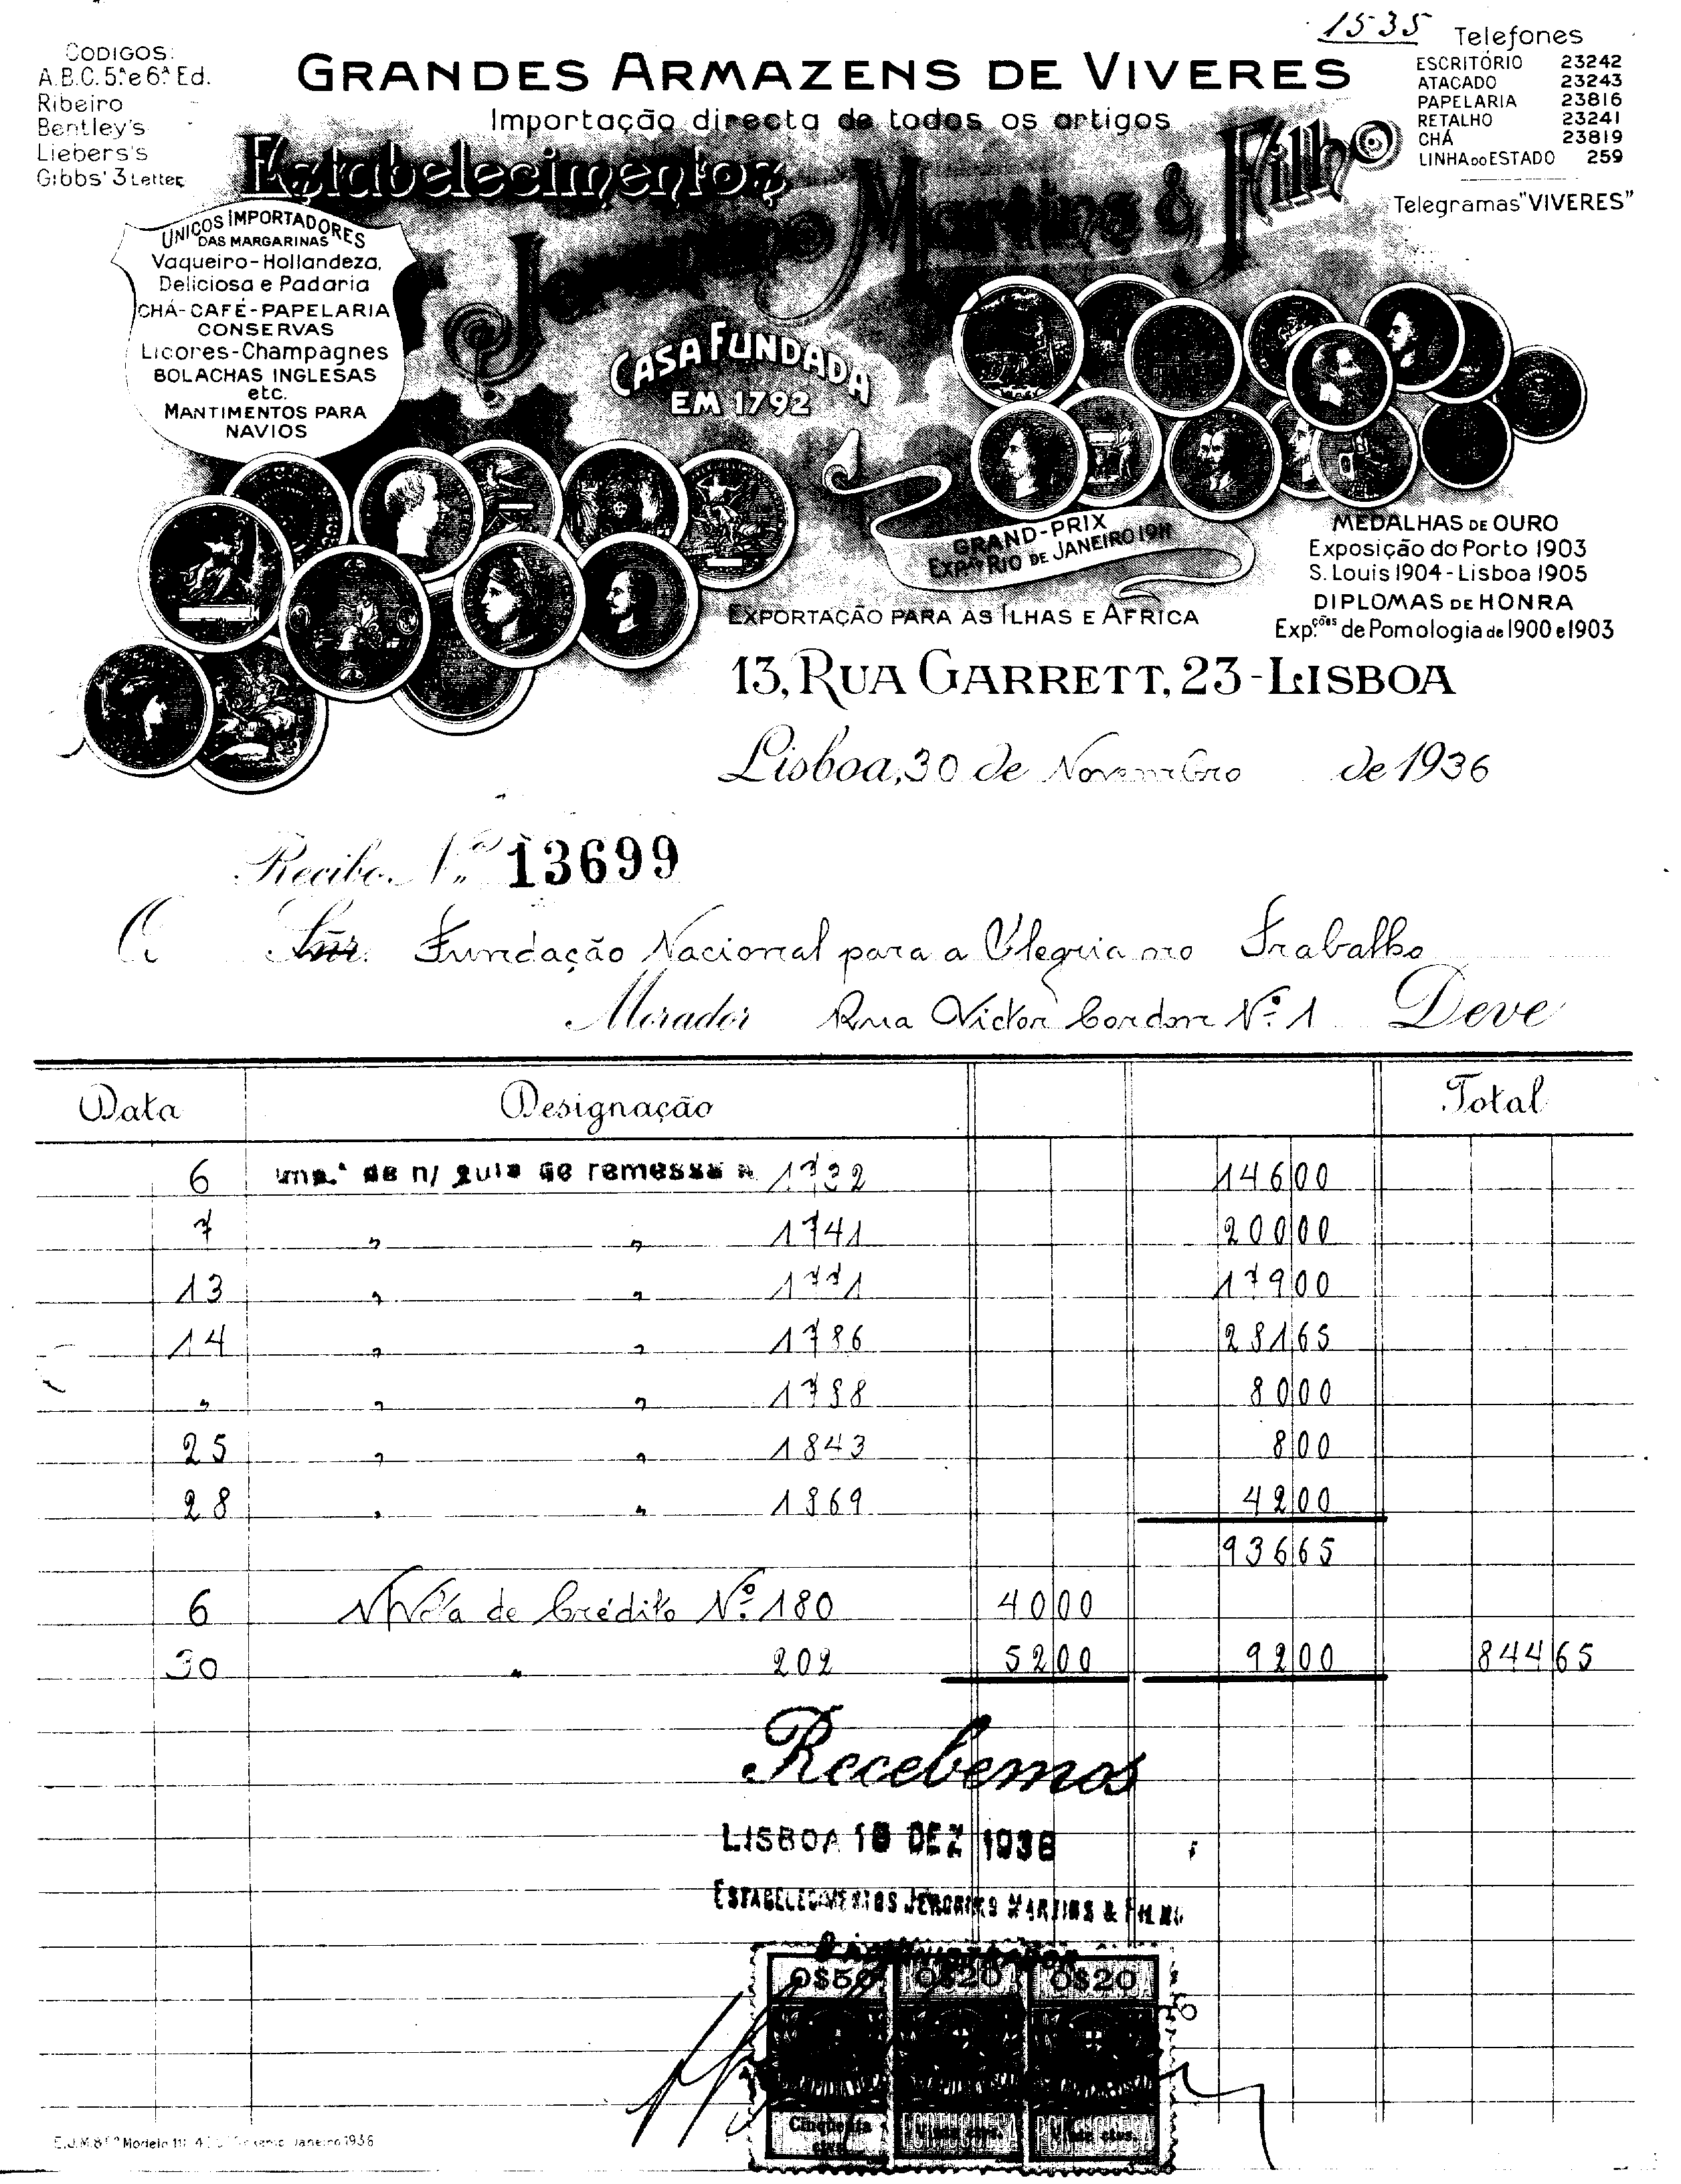 1535
CODIGOS:
A.B.C. 5ª e 6ª Ed.
Ribeiro
Bentley's
Liebers's
Gibbs' 3 Letter
GRANDES ARMAZENS DE VIVERES
Importação directa de todos os artigos
Telefones
ESCRITÓRIO 23242
ATACADO 23243
PAPELARIA 23816
RETALHO 23241
CHÁ 23819
LINHA DO ESTADO 259
Telegramas "VIVERES"
Estabelecimentos
Jeronimo Martins & Filho
UNICOS IMPORTADORES
DAS MARGARINAS
Vaqueiro-Hollandeza,
Deliciosa e Padaria
CHÁ-CAFÉ-PAPELARIA
CONSERVAS
Licores-Champagnes
BOLACHAS INGLESAS
etc.
MANTIMENTOS PARA
NAVIOS
CASA FUNDADA
EM 1792
GRAND-PRIX
RIO DE JANEIRO
MEDALHAS DE OURO
Exposição do Porto 1903
S. Louis 1904-Lisboa 1905
DIPLOMAS DE HONRA
Exp.ções de Pomologia de 1900 e 1903
EXPORTAÇÃO PARA AS ILHAS E AFRICA
13, RUA GARRETT, 23-LISBOA
Lisboa, 30 de Novembro de 1936
Recibo Nº 13699
Snr. Fundação Nacional para a Alegria no Trabalho
Morador Rua Victor Cordon Nº 1 Deve
Data Designação Total
6 de n/ guia de remessa 1732 146 00
7 " " 1741 200 00
13 " " 1771 179 00
14 " " 1786 281 65
" " " 1788 80 00
25 " " 1843 8 00
28 " " 1869 42 00
936 65
6 de Crédito Nº 180 40 00
30 " 202 52 00 92 00 844 65
Recebemos
LISBOA DEZ 1936
ESTABELECIMENTOS JERONIMO MARTINS & FILHO
0$50 0$20 0$20
Cinquenta